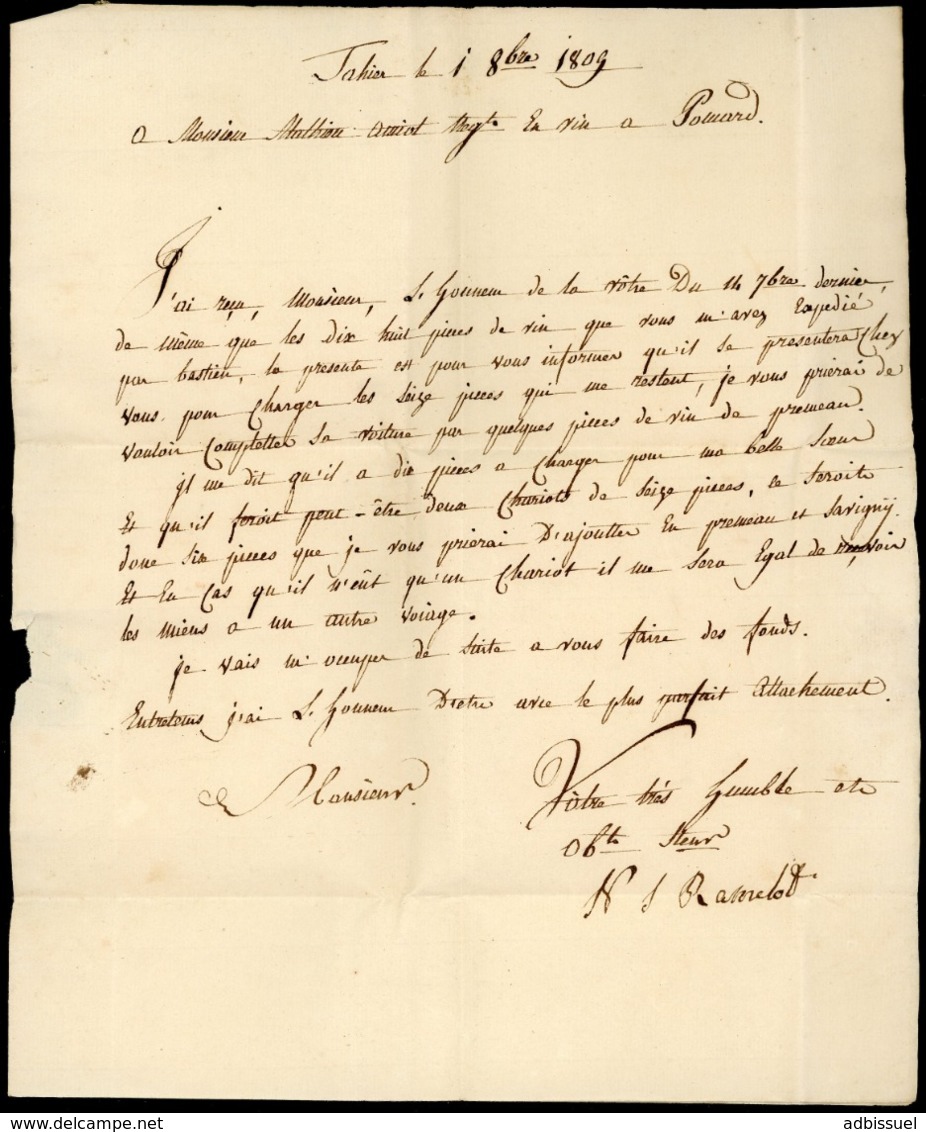 Jahier le 1 8bre 1809
a Monsieur Mathieu amiot Negt En vin a Pomard.
J'ai reçu, Monsieur, L'honneur de la vôtre Du 14 7bre dernier,
de même que les dix huit pieces de vin que vous m'avez Expedié
par bastien, la presente est pour vous informer qu'il se presentera Chez
vous pour Charger les seize pieces qui me restent, je vous prierai de
vouloir Completter sa voiture par quelques pieces de vin de premeau.
jl me dit qu'il a dix pieces a Charger pour ma belle sœur
Et qu'il feroit peut-être deux Chariots de seize pieces, ce seroit
donc six pieces que je vous prierai D'ajoutter En premeau et savigny.
Et En Cas qu'il n'eût qu'un Chariot il me sera Egal de recevoir
les miens a un autre voiage.
je vais m'occuper de suite a vous faire des fonds.
Entretems j'ai L'honneur D'etre avec le plus parfait attachement
Monsieur
Vôtre trés humble et
obt. steur
N J Ramelot
adbissuel